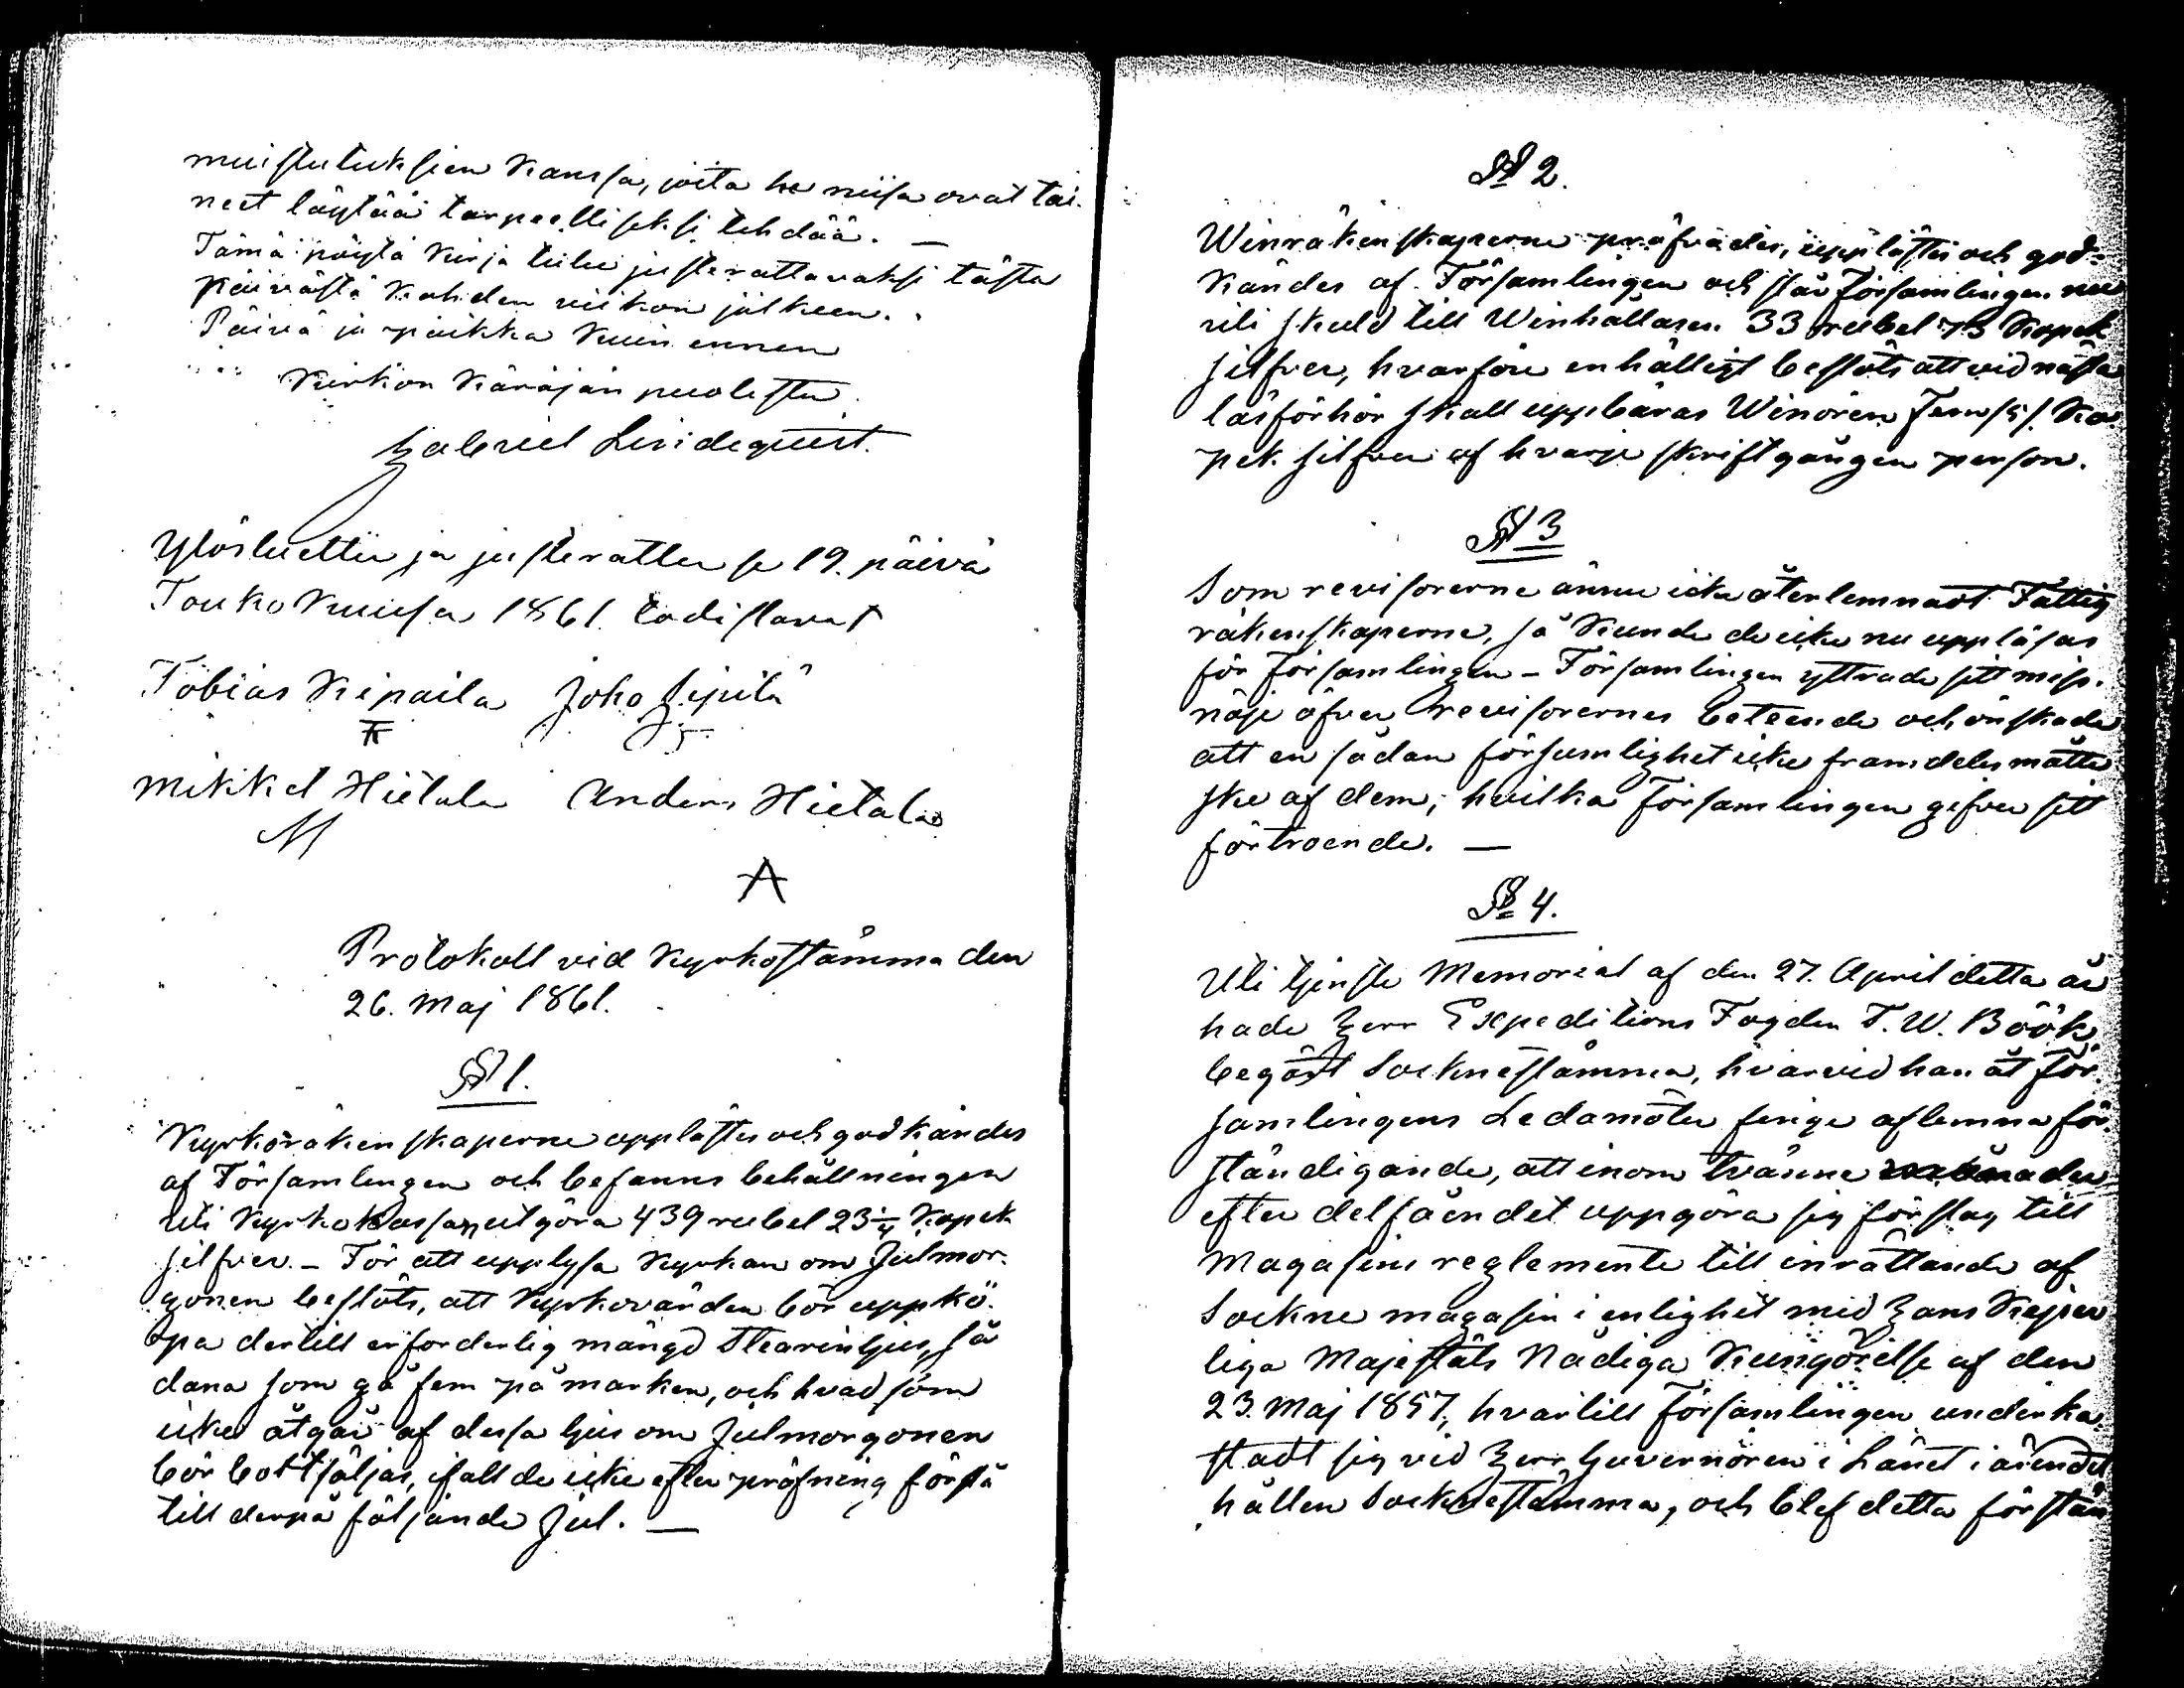 muistutuksien kanssa, joita he niisä ovat tai-
neet löytää tarpeelliseksi tehdää. —
Tämä pöytä kirja tulee justerattavaksi tästa
päivästä kahden viikon jälkeen.
Päivä ja paikka kuin ennen
Kirkon Käräjän puolesta
Gabriel Lindequist.
Ylösluettu ja justerattu se 19. päivä
Touko Kuusa 1861 todistavat
Tobias Kipaila Joho Sipilä
Mikkel Hietala Anders Hietala
M
A
Protokoll vid Kyrkostämma den
26. Maj 1861.
§ 1.
Kyrkoräkenskaperne upplästes och godkändes
af Församlingen och befanns behållningen
uti Kyrkokassan utgöra 439 rubel 23 1/4 Kopek
silfver. – För att upplysa Kyrkan om Julmor-
gonen beslöts, att Kyrkovärden bör uppkö-
pa dertill erforderlig mängd Stearinljus, så
dana som gå fem på marken, och hvad som
icke åtgår af dessa ljus om Julmorgonen
bör bortsäljas, ifall de icke efter pröfning förstå
till derpå följande Jul. —
§ 2.
Winräkenskaperne pröfvades, upplästes och god-
kändes af Församlingen och står Församlingen nu
uti skuld till Winhållaren 33 rubel 73 Kopek
silfver, hvarföre enhälligt beslöts att vid nästa
läsförhör skall uppbäras Winören Fem /5/ Ko-
pek silfver af hvarje skriftgången person.
§ 3
Som revisorerne ännu icke återlemnadt Fattig
räkenskaperne, så kunde de icke nu uppläsas
för Församlingen – Församlingen yttrade sitt miss-
nöje öfver revisorernes beteende och önskade
att en sådan försumlighet icke framdeles måtte
ske af dem, hvilka Församlingen gifver sitt
förtroende. —
§ 4.
Uti tjenste Memorial af den 27. April detta år
hade Herr Expeditions Fogden T. W. Böök
begärt Socknestämma, hvarvid han åt För-
samlingens Ledamöter finge aflemna för-
ständigande, att inom tvänne månader
efter delfåendet uppgöra sig förslag till
Magasins reglemente till inrättande af
Sockne magasin i enlighet med Hans Kejser
liga Majestäts Nådiga Kungörelse af den
23. Maj 1857, hvartill Församlingen underka-
stadt sig vid Herr Guvernören i Länet i ärendet
hållen Socknestämma, och blef detta förstän